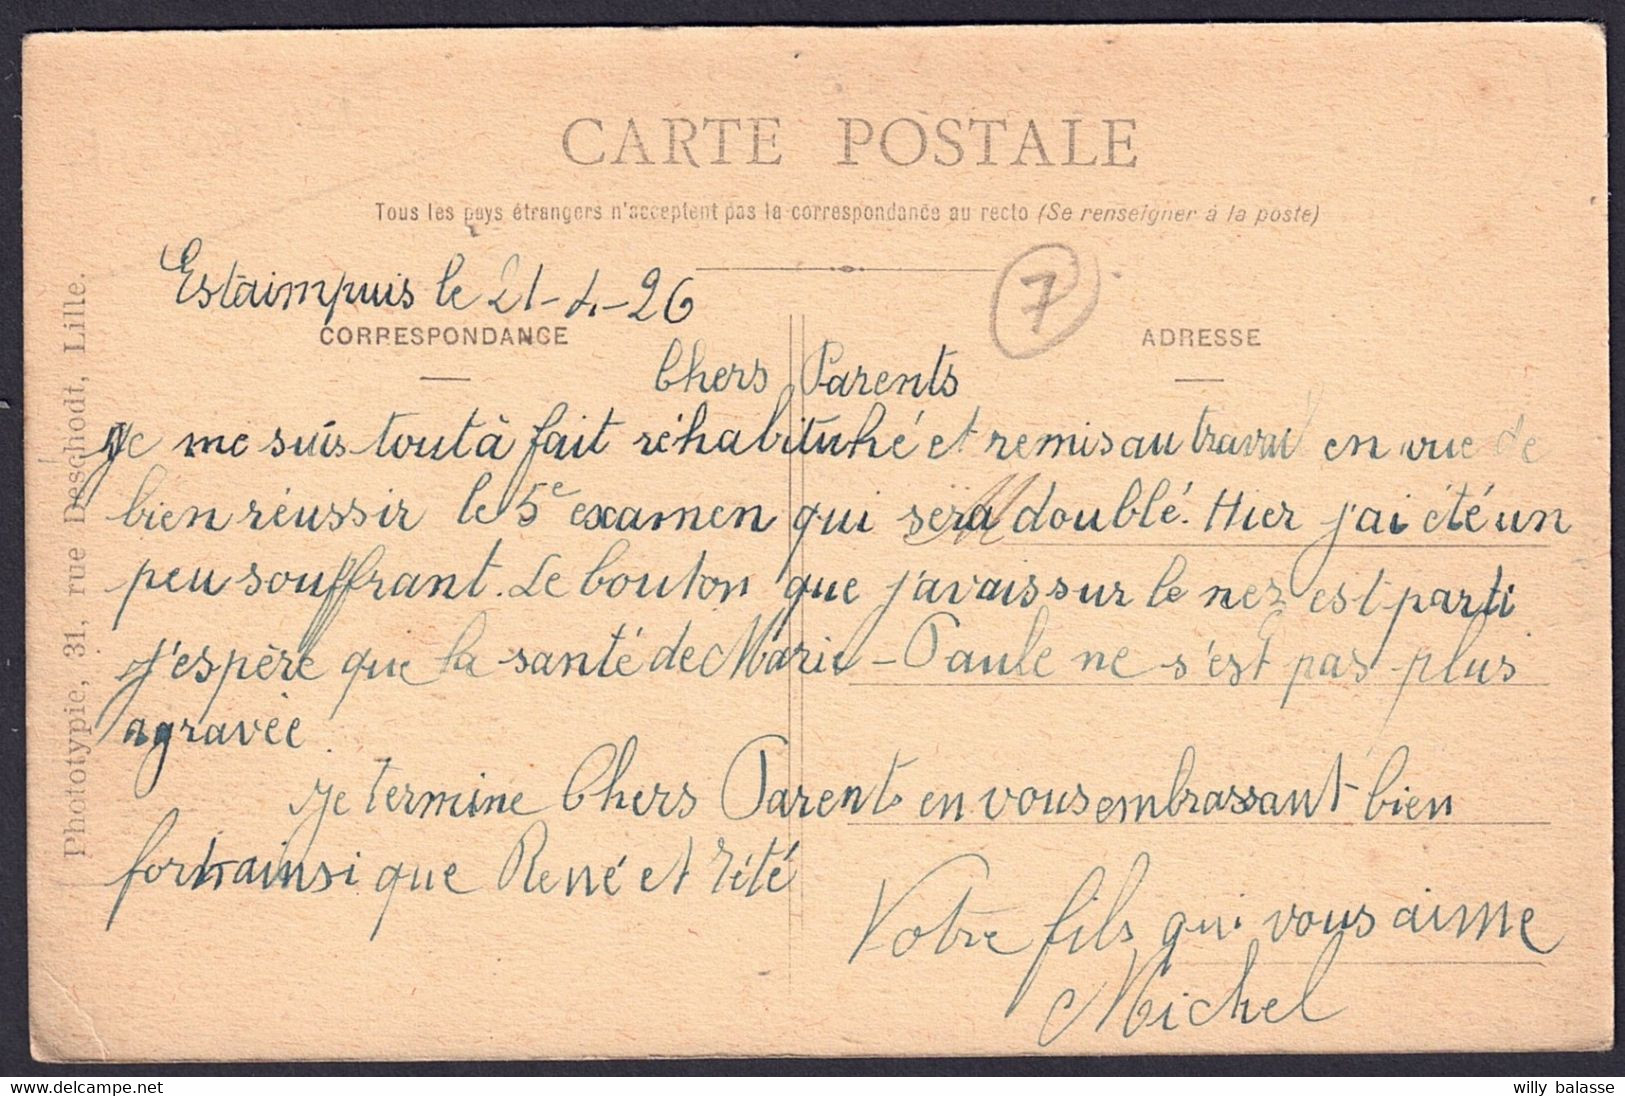 CARTE POSTALE
Tous les pays étrangers n'acceptent pas la correspondance au recto (Se renseigner à la poste)
Estaimpuis le 21-4-26
7
CORRESPONDANCE
ADRESSE
Chers Parents
Je me suis tout à fait réhabituhé et remis au travail en vue de
bien réussir le 5e examen qui sera doublé. Hier j'ai été un
peu souffrant. Le bouton que j'avais sur le nez est parti
j'espère que la santé de Marie-Paule ne s'est pas plus
agravée.
Je termine Chers Parents en vous embrassant bien
fort ainsi que René et Tété
Votre fils qui vous aime
Michel
Phototypie, 31, rue Deschodt, Lille.
willy balasse